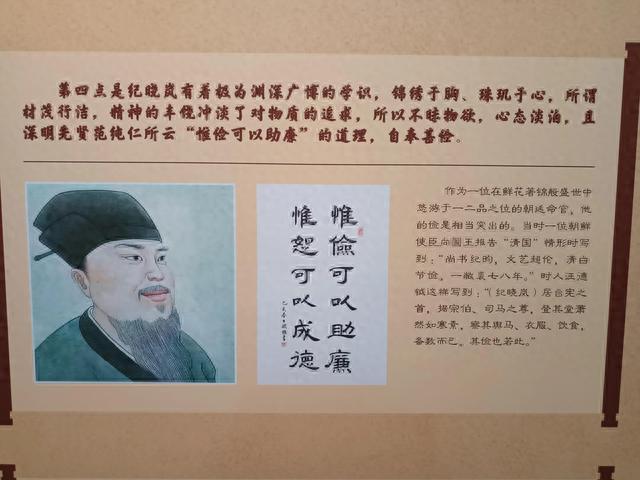 第四点是纪晓岚有着极为渊深广博的学识，锦绣于胸、珠玑于心，所谓
材茂行洁，精神的丰饶冲淡了对物质的追求，所以不昧物欲，心态淡泊，且
深明先贤范纯仁所云“惟俭可以助廉”的道理，自奉甚俭。
惟儉可以助廉
惟恕可以成德
作为一位在鲜花著锦般盛世中
悠游于一二品之位的朝廷命官，他
的俭是相当突出的。当时一位朝鲜
使臣向国王报告“清国”情形时写
到：“尚书纪昀，文艺超伦，清白
节俭，一敝裘七八年。”时人汪德
钺这样写到：“（纪晓岚）居台宪之
首，据宗伯、司马之尊，登其堂萧
然如寒素，察其舆马、衣服、饮食，
备数而已。其俭也若此。”